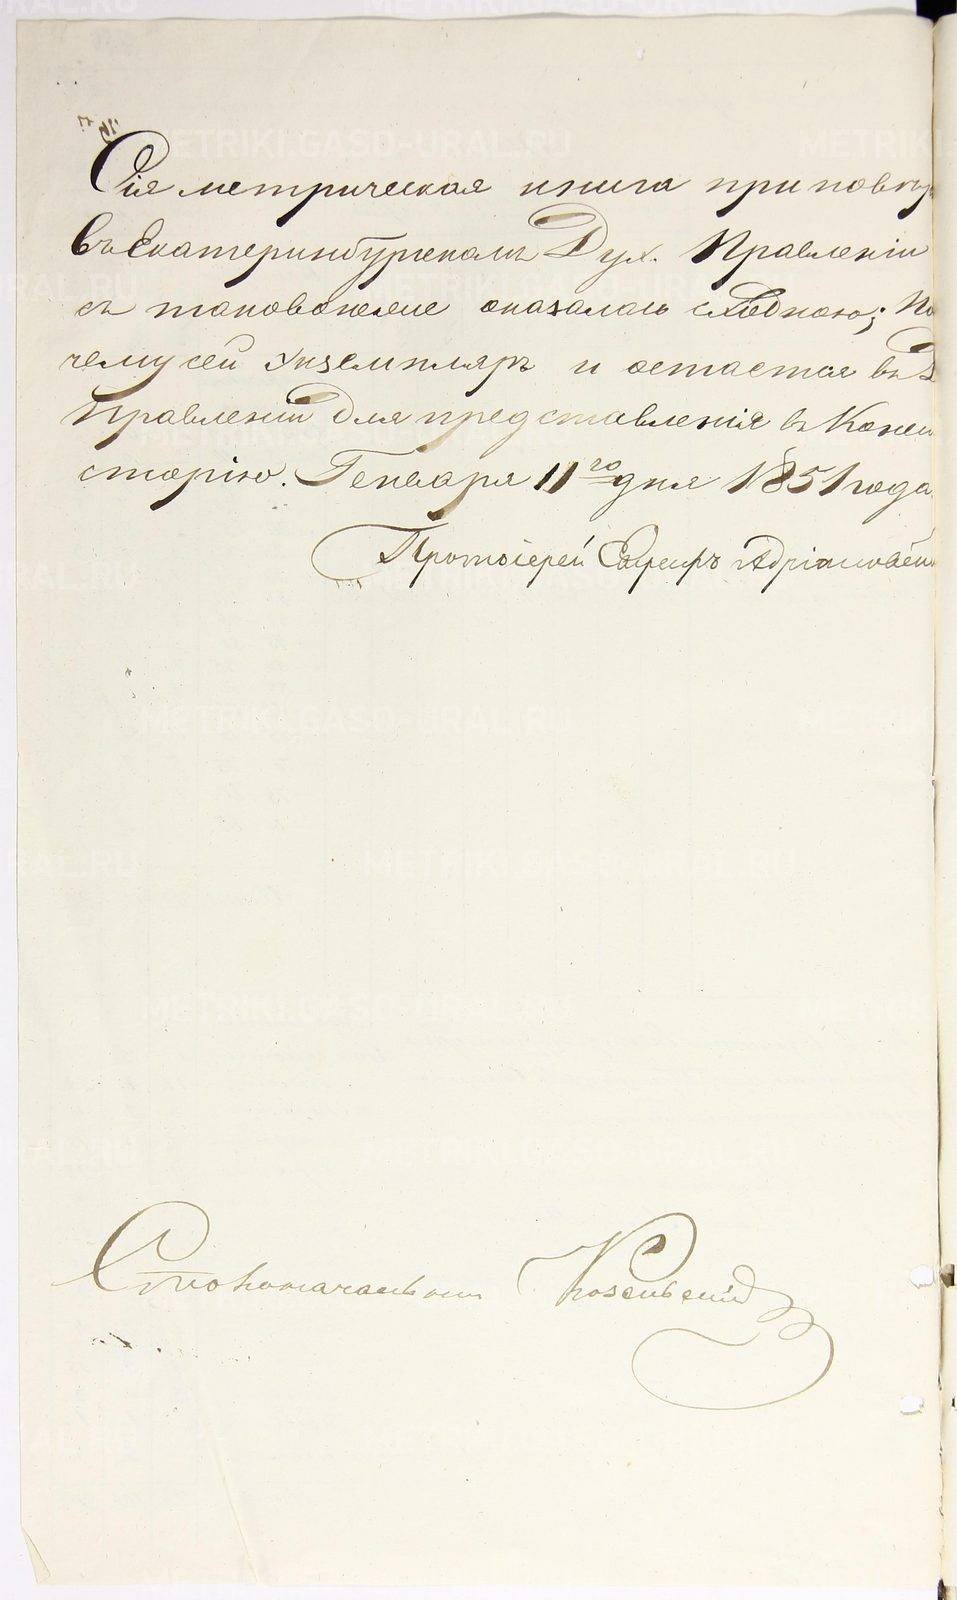 Сія метрическая книга при повѣр
въ Екатеринбургскомъ Дух. Правленіи
съ таковоюже оказалась сходною; По
чему сей экземпляръ и остается въ Д
Правленіи для представленія въ Конси
сторію. Генваря 11го дня 1851 года.
Протоіерей
Столоначальникъ
METRIKI.GASO-URAL.RU